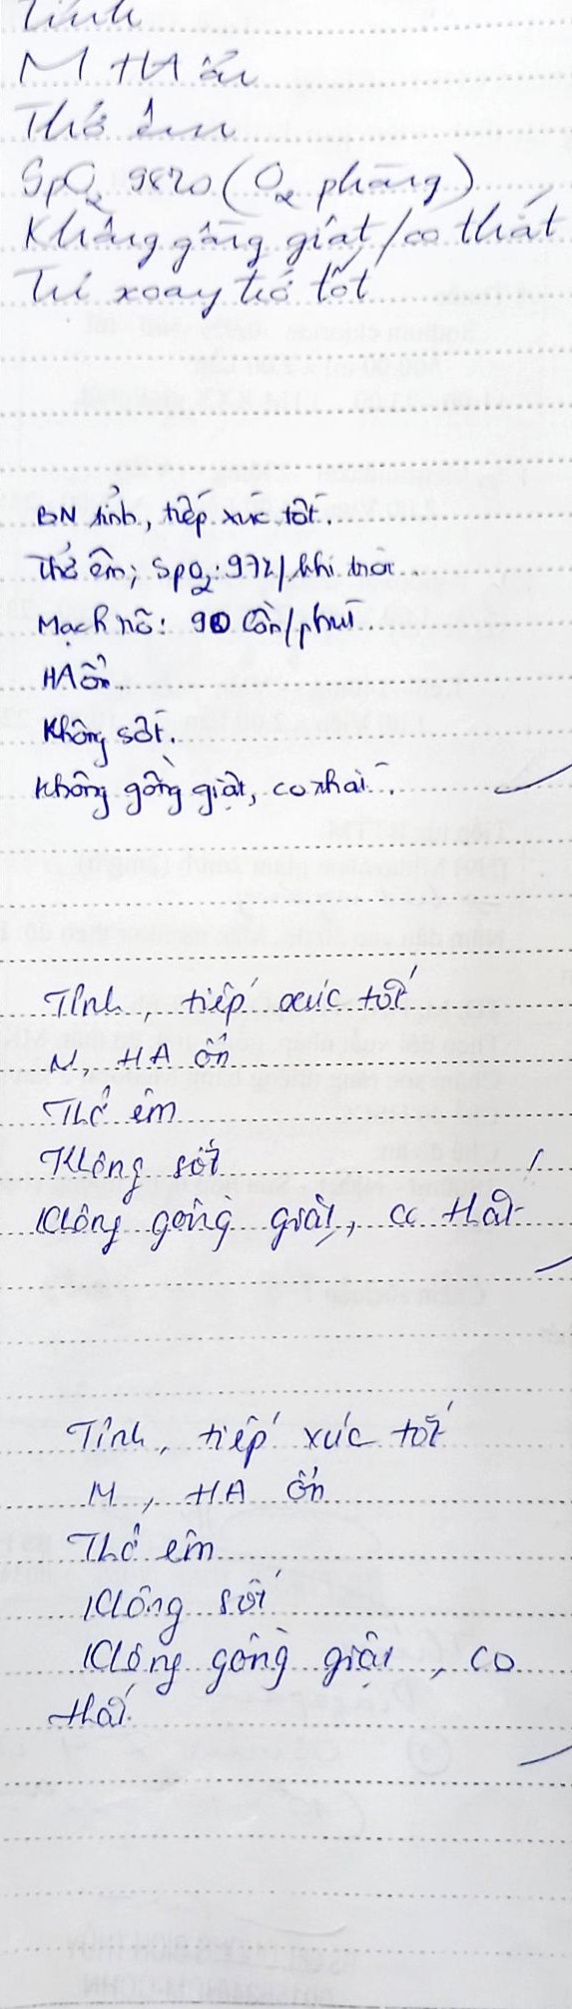 Tỉnh
M HA ổn
Thở êm
SpO2 98% (O2 phòng)
Không gồng giật/co thắt
Tự xoay trở tốt
BN tỉnh, tiếp xúc tốt.
Thở êm; SpO2: 97%/khí trời
Mạch rõ: 90 lần/phút
HA ổn.
Không sốt.
Không gồng giật, co thắt.
Tỉnh, tiếp xúc tốt
M, HA ổn
Thở êm
Không sốt
Không gồng giật, co thắt
Tỉnh, tiếp xúc tốt
M, HA ổn
Thở êm
Không sốt
Không gồng giật, co
thắt.